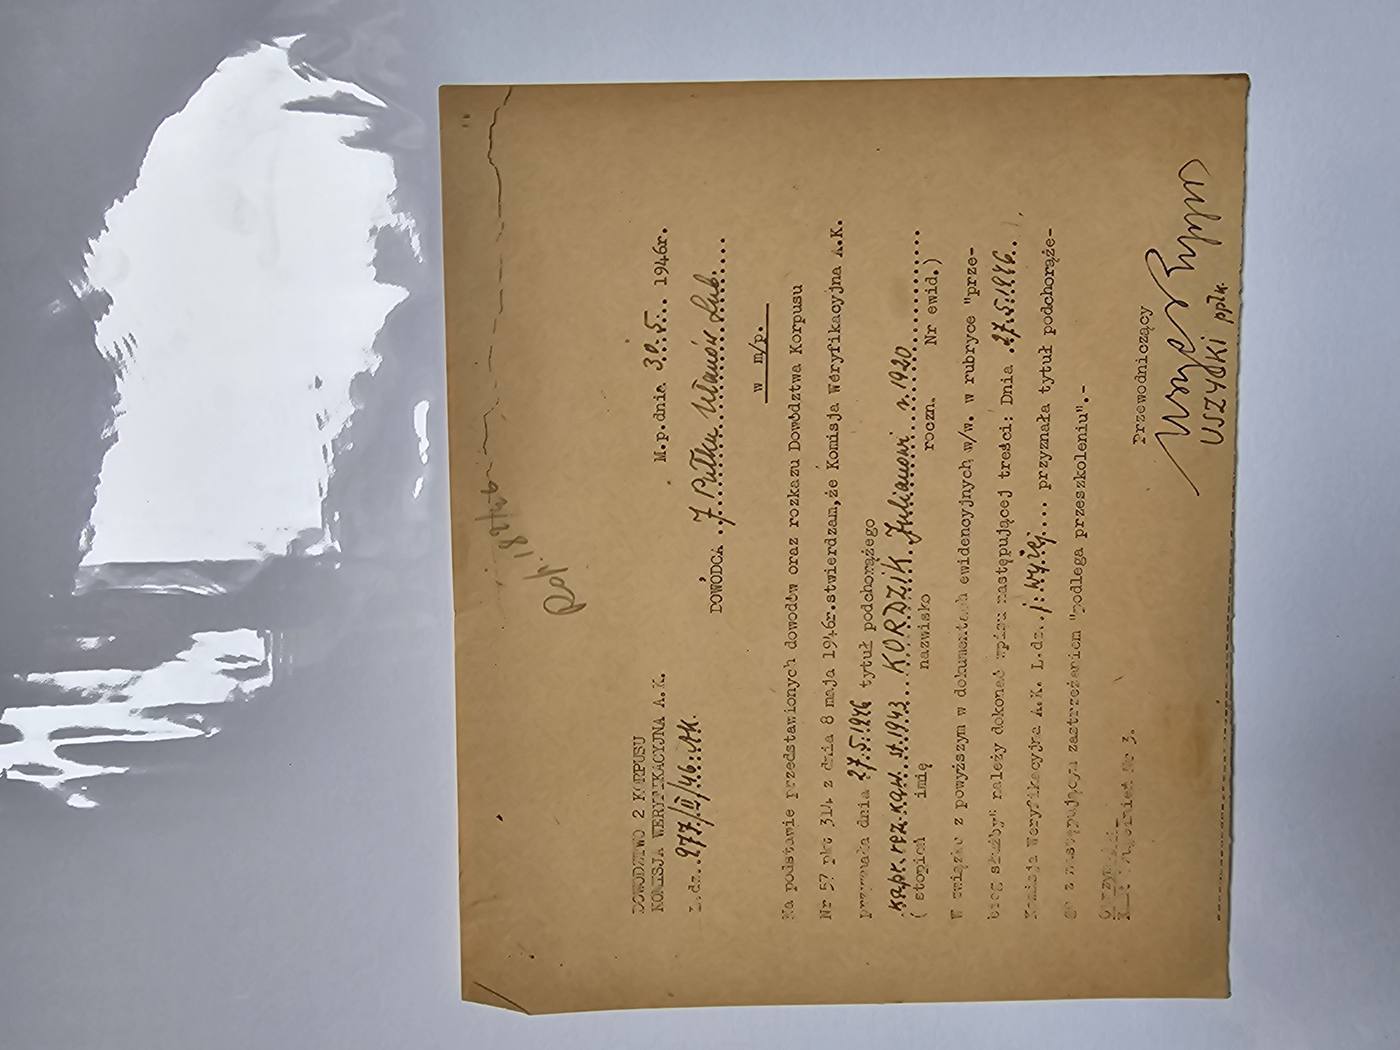 Rop. 182/46
DOWÓDZTWO 2 KORPUSU
KOMISJA WERYFIKACYJNA A.K.
L.dz. 977/II/46.AK. M.p.dnia 30.5. 1946r.
DOWÓDCA 7 Pułku Ułanów Lub.
w m/p.
Na podstawie przedstawionych dowodów oraz rozkazu Dowództwa Korpusu
Nr 57 pkt 314 z dnia 8 maja 1946r.stwierdzam,że Komisja Weryfikacyjna A.K.
przyznała dnia 27.5.1946 tytuł podchorążego
kapr.rez.kaw. st.1943 KORDZIK Julianowi r.1920
( stopień imię nazwisko roczn. Nr ewid.)
W związku z powyższym w dokumentach ewidencyjnych w/w. w rubryce "prze-
bieg służby" należy dokonać wpisu następującej treści: Dnia 27.5.1946.
Komisja Weryfikacyjna A.K. L.dz. j.wyżej przyznała tytuł podchorąże-
go z następującym zastrzeżeniem "podlega przeszkoleniu".-
Przewodniczący
Otrzymują:
Nr 3.
USZYCKI ppłk.